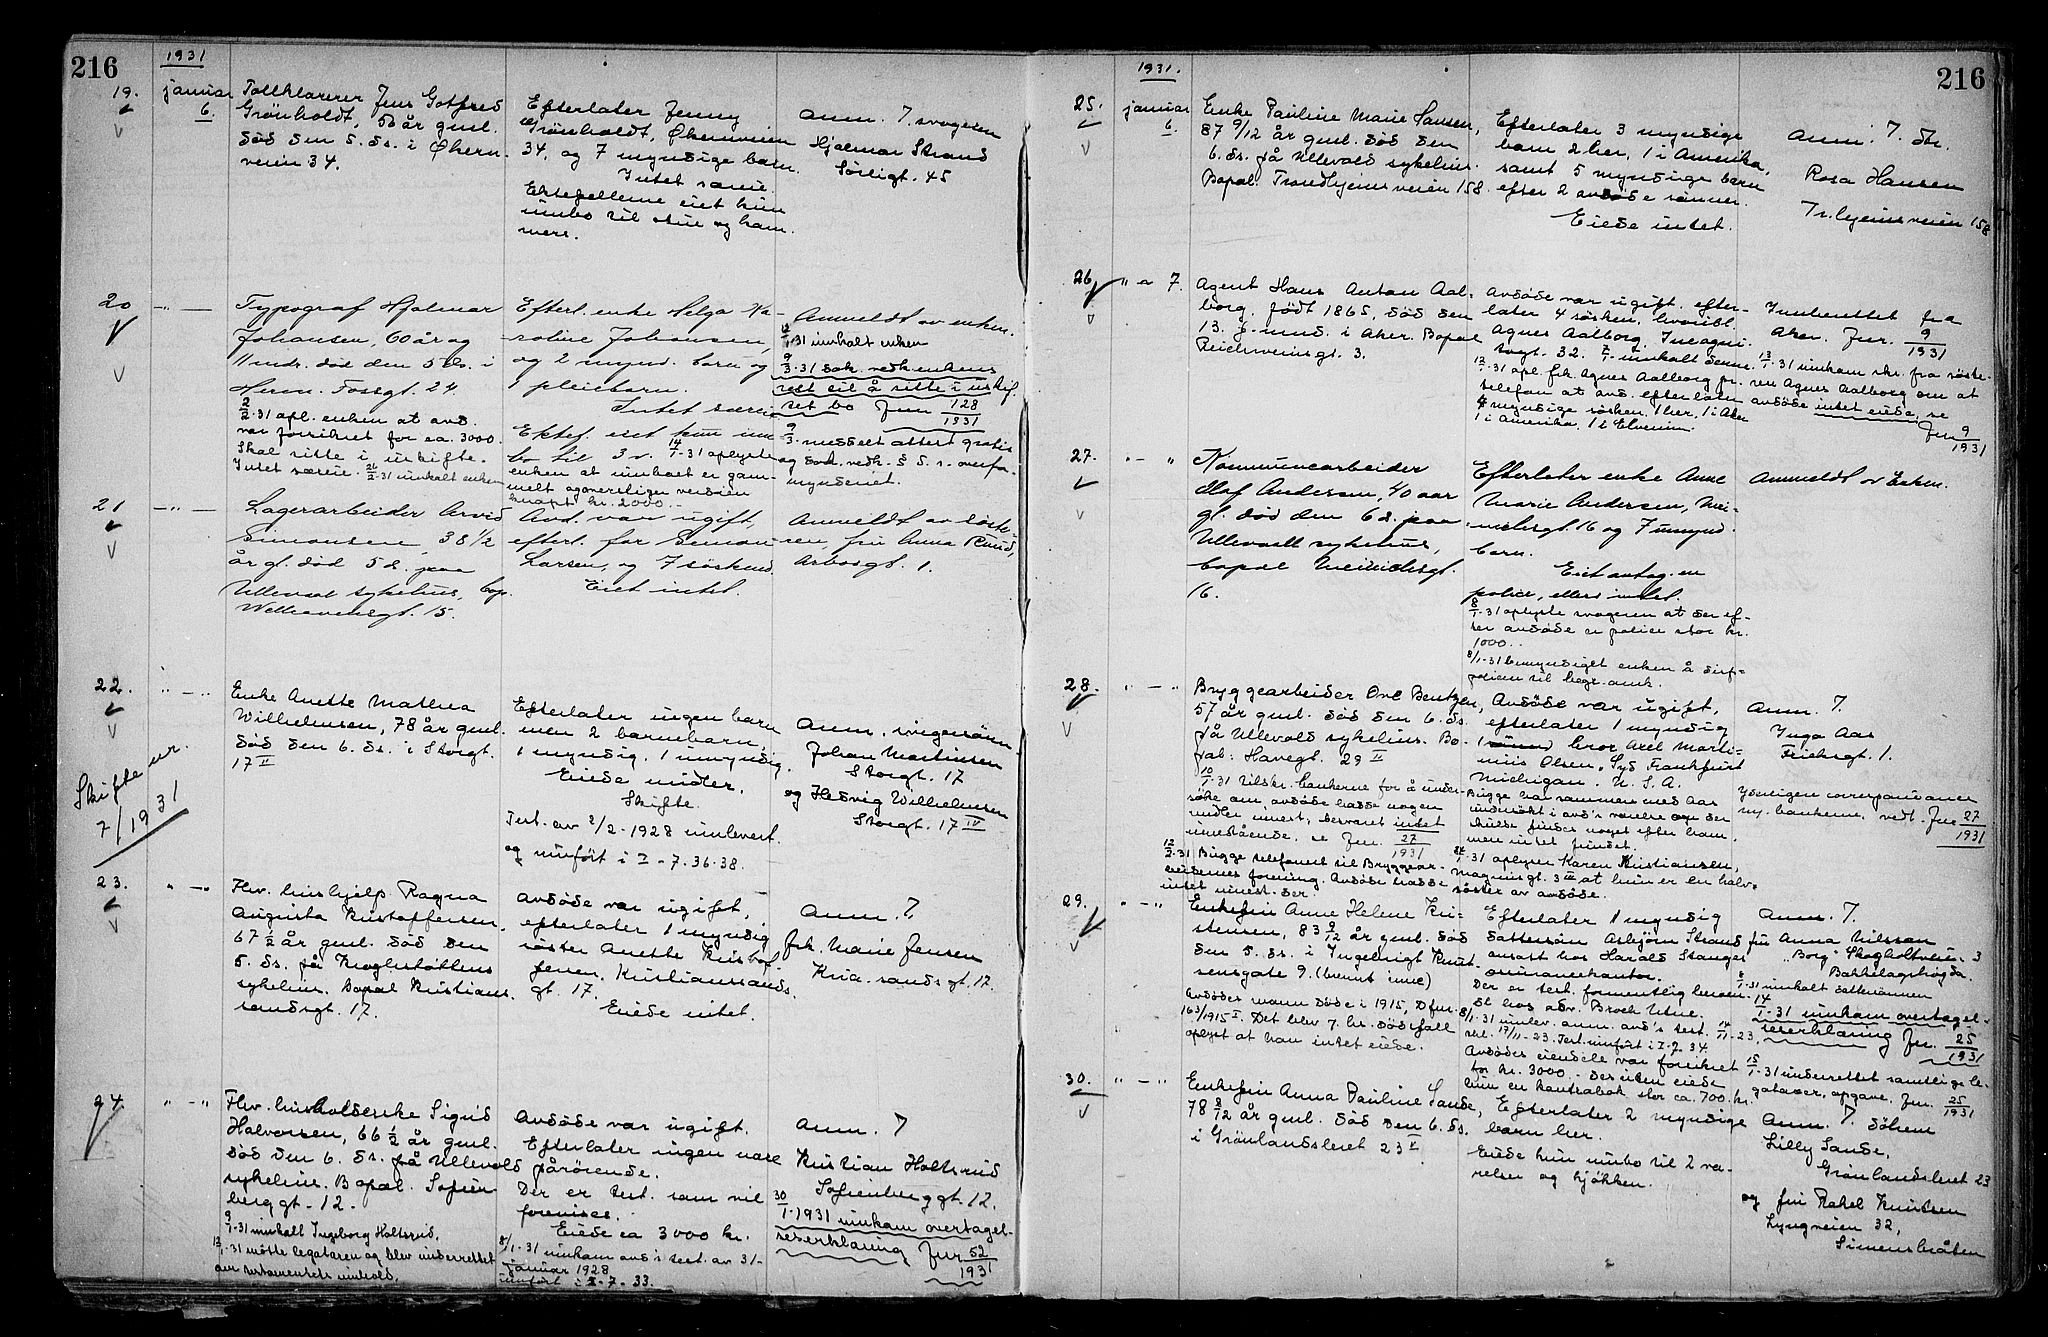 216
1931
19.
januar
6.
Tollklarerer Jens Gotfred
Grönholdt, 56 år gml.
död den 5. ds. i Økern-
veien 34.
Efterlater Jenny
Grönholdt, Økernveien
34, og 7 myndige barn.
Intet særeie.
Ektefellene eiet kun
innbo til stue og kam
mers.
Anm. 7. svogeren
Hjalmar Strand
Sörligt. 45
20
Typograf Hjalmar
Johansen, 60 år og
11 mdr. död den 5 ds. i
Herm. Fossgt. 24.
2/2-31 opl. enken at avd.
var forsikret for ca. 3000.
Skal sitte i uskifte.
Intet særeie. 21/2-31 innkalt enken
Efterl. enke Helga Ka-
roline Johansen,
og 2 mynd. barn og
1 pleiebarn.
Intet særeie
Ektef. eiet kun inn
bo til 3 v. 14/1-31 oplyste
enken at innboet er gam-
melt og overstiger verdien
knapt kr. 2000.-
Anmeldt av enken.
1-31 innkalt enken
9/3-31 dok. vedk. enkens
rett til å sitte i uskif-
tet bo Jnr 128/1931
9/3. meddelt attest gratis
og sod. vedk. § 5. s. overfor-
mynderiet.
21
Lagerarbeider Arvid
Simonsen, 38 1/2
år gl. död 5 d. paa
Ullevaal sykehus, bop.
Welhavensgt. 15.
Avd. var ugift,
efterl. far Simon
Larsen, og 7 söskend.
Eiet intet.
Anmeldt av söste-
ren, fru Anna Ruud,
Arbosgt. 1.
22.
Skifte nr.
7/1931
Enke Anette Mathea
Wilhelmsen, 78 år gml.
död den 6. ds. i Storgt.
17 II
Efterlater ingen barn
men 2 barnebarn,
1 myndig, 1 umyndig.
Eiede midler.
Skifte.
Test. av 2/2-1928 innlevert
og innfört i I-7.36-38.
Anm. svigersönn
Johan Martinsen
Storgt. 17
og Hedvig Wilhelmsen
Storgt. 17 IV
23.
Fhv. hushjelp Ragna
Augusta Kristoffersen,
67 1/2 år gml. död den
5. ds. på Krogstöttens
sykehus. Bopæl Kristians-
sandsgt. 17.
Avdöde var ugift,
efterlater 1 myndig
söster Anette Kristof
fersen, Kristianssands-
gt. 17.
Eiede intet.
Anm. 7.
frk. Marie Jensen
Kria.sandsgt. 17.
24
Fhv. husholderske Sigrid
Halvorsen, 66 1/2 år gml.
död den 6. ds. på Ullevold
sykehus. Bopæl. Sofien-
berggt. 12.
9/1-31 innkalt Ingeborg Holtsrud.
13/1-31 mötte legataren og blev underrettet
om testamentets innhold.
Avdöde var ugift.
Efterlater ingen nære
pårörende.
Der er test. som vil
fremvises.
Eiede ca 3000 kr.
8/1-31 innkom avd's test. av 31-
januar 1928
innfört i I-7-33.
Anm. 7
Kristian Holtsrud
Sofienberggt. 12.
30/1-1931 innkom overtagel-
seserklæring Jnr 52/1931
216
1931.
25.
januar
6.
Enke Pauline Marie Hansen,
87 9/12 år gml. död den
6. ds. på Ullevold sykehus.
Bopæl. Trondhjemsveien 158.
Efterlater 3 myndige
barn 2 her, 1 i Amerika,
samt 5 myndige barn
efter 2 avdöde sönner.
Eiede intet.
Anm. 7. dtr.
Rosa Hansen
Tr.hjemsveien 158
26
7.
Agent Hans Anton Aal-
borg, födt 1865, död den
13. f. mnd. i Aker. Bopæl
Reichweinsgt. 3.
Avdöde var ugift. efter-
later 4 sösken, hvoribl.
Agnes Aalborg, Incogni-
togt. 32. 7/1 innkalt denne.
12/1-31 opl. frk. Agnes Aalborg pr.
telefon at avd. efterlater
4 myndige sösken. 1 her, 1 i Aker
1 i Amerika, 1 i Elverum.
Innberettet fra
Aker. Jnr. 9/1931
13/1-31 innkom skr. fra söste-
ren Agnes Aalborg om at
avdöde intet eiede, se
Jnr 9/1931
27.
Kommunearbeider
Olaf Andersen, 40 aar
gl. död den 6 d. paa
Ullevaall sykehus,
bopæl Meinichsgt.
16.
Efterlater enke Anne
Marie Andersen, Mei-
nichsgt. 16 og 7 umynd.
barn.
Eiet antag. en
police, ellers intet.
8/1-31 oplyste svogeren at der ef-
ter avdöde er police stor kr.
1000.-
8/1-31 bemyndiget enken å disp-
policen til begr. omk.
Anmeldt av Enken.
28.
Bryggearbeider Ove Bentzen,
57 år gml. död den 6. ds.
på Ullevold sykehus. Bo-
pæl: Havegt. 29 II
10/1-31 tilskr. bankene for å under-
söke om avdöde hadde nogen
midler innest, besvaret intet
innestående. se Jnr. 27/1931
12/2-31 Bugge telefonert til Bryggear-
beidernes forening. Avdöde hadde
intet innest. der.
Avdöde var ugift,
efterlater 1 myndig
bror Axel Marti-
nius Olsen, Syd Frankfurt
Michigan. U. S. A.
Bugge har sammen med Aas
undersökt i avd's værelse om der
skulde findes noget efter ham,
men intet fundet.
1-31 oplyser Karen Kristiansen,
Magnusgt. 3 III at hun er en halv-
söster av avdöde.
Anm. 7.
Inga Aas
Friisksgt. 1.
Ytterligere correspondance
m. bankerne, vedl. Jnr 27/1931
29.
Enkefru Anne Helene Kri-
stensen, 83 9/12 år gml. död
den 5. ds. i Ingebrigt Knut-
sensgate 9. (brent inne)
Avdödes mann döde i 1915, D fnr.
163/1915 I. Det blev 7. hr. dödsfall
oplyst at han intet eiede.
Efterlater 1 myndig
dattersön Asbjörn Strand
ansatt hos Harald Stanges
ordinancekontor.
Der er test. formentlig beroen-
de hos adv. Broch Utne.
8/1-31 innlev. anm. avd's test. 14/11-23,
skl. 17/11-23. Test. innfört i I-7.34.
Avdödes eiendele var forsikret
for kr. 3000.- Desuten eiede
hun en bankbok stor ca. 700. kr.
Anm. 7.
fru Anna Nilsson
"Borg" Skogholtveien 3
Bekkelagshögda.
8/1-31 innkalt dattersönnen
14/1-31 innkom overtagel-
seserklæring Jnr. 25/1931
15/1-31 underrettet samtlige le-
gatarer, opgave. Jnr. 25/1931
30.
Enkefru Anna Pauline Sande,
78 8/12 år gml. död den 6. ds.
i Grönlandsleret 23 II
Efterlater 2 myndige
barn her.
Eiede kun innbo til 2 væ-
relser og kjökken.
Anm. 7. döttrene
Lilly Sande,
Grönlandsleret 23
og fru Rakel Knutsen
Lyngveien 32,
Simensbråten